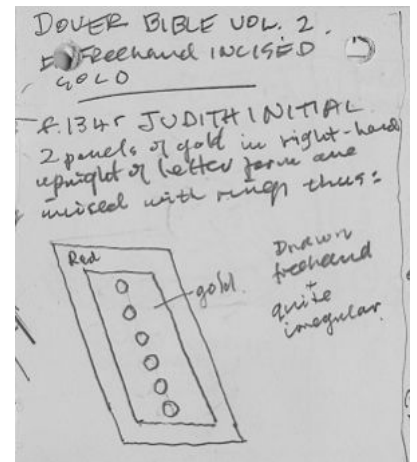 DOVER BIBLE VOL. 2.
Freehand INCISED
GOLD
f.134r JUDITH INITIAL
2 panels of gold in right-hand
upright of letter form are
incised with rings thus:
Red
gold.
Drawn
freehand
+
quite
irregular.